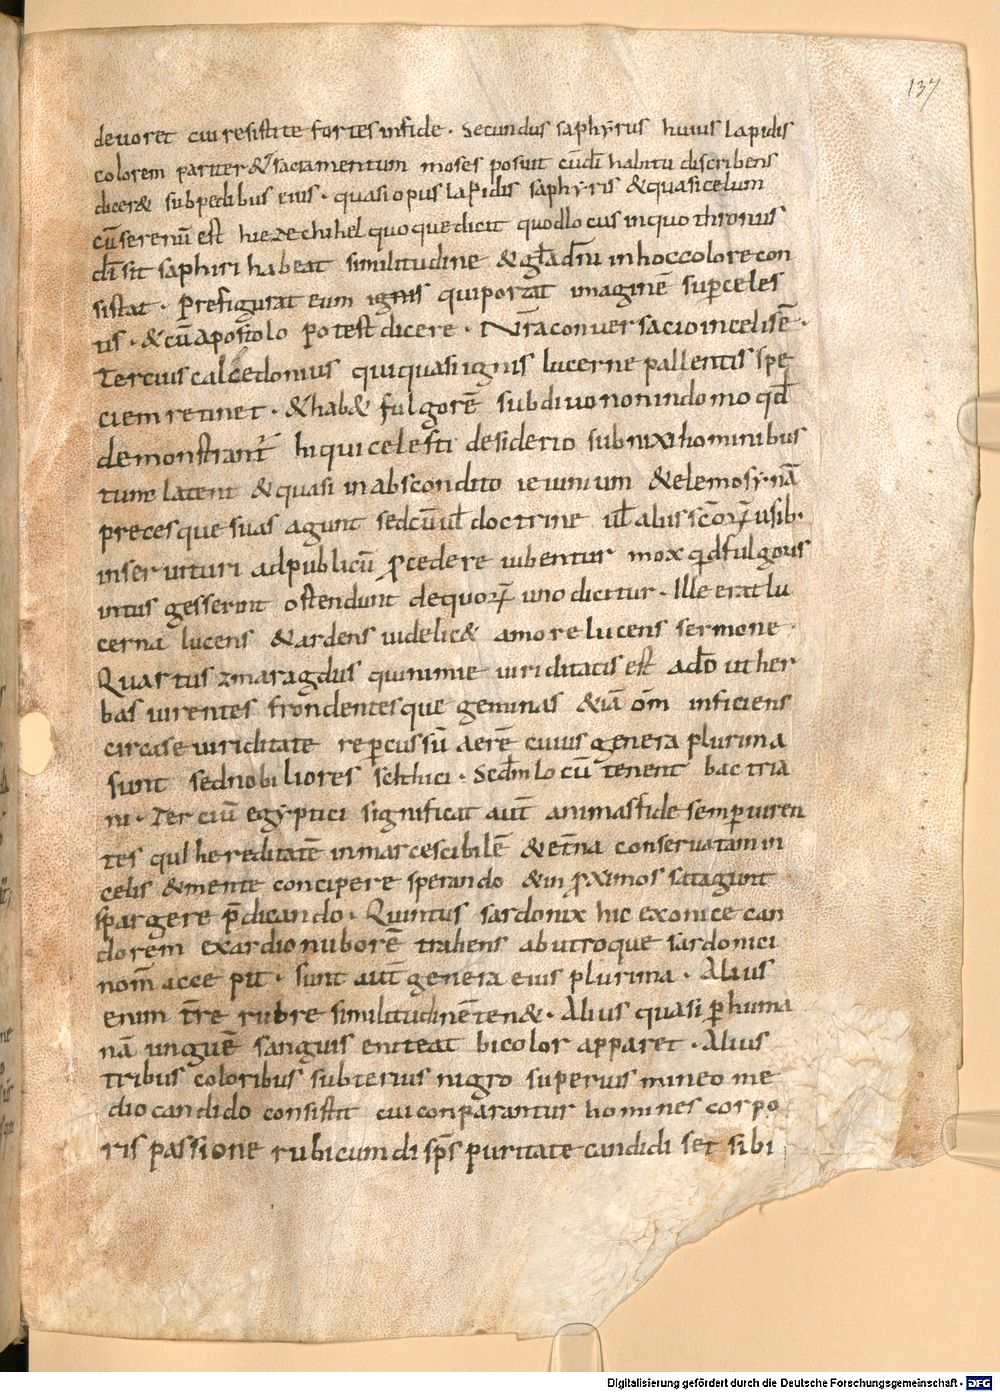 137
deuoret cui resistite fortes in fide · Secundus saphyrus huius lapidis
colorem pariter & sacramentum moses posuit cū dī habitu discribens
dicer& sub pedibus eius · quasi opus lapidis saphyris & quasi celum
cū serenū est hiezechihel quoque dicit quod locus in quo thronus
dī sit saphiri habeat similitudinē & gła dn̄i in hoc colore con
sistat · Prefigurat eum ignis qui portat imaginē sup celes
tis · & cū apostolo potest dicere · Nr̄a conuersacio in celis ē ·
Tercius calcedonius qui quasi ignis lucerne pallentis spē
ciem retinet · & hab& fulgorē sub diuo non in domo qđ
demonstrant̄ hi qui celesti desiderio subnixi hominibus
tum latent & quasi in abscondito ieiunium & elemosynā
precesque suas agunt sed cū uł doctrine uł aliis sc̄orum usib·
inseruituri ad publicū procedere iubentur mox qđ fulgoris
intus gesserint ostendunt de quorum uno dicitur · Ille erat lu
cerna lucens & ardens uidelic& amore lucens sermone
Quartus zmaragdus qui nimie uiriditatis est adeo ut her
bas uirentes frondentesque gemmas & iā om̄ inficiens
circa se uiriditate repercussū aerē cuius genera plurima
sunt sed nobiliores scithici · Scdm locū tenent bactria
ni · Terciū egyptici significat aut̄ animas fide semp uiren
tes qui hereditatē inmarcescibilē & et̄na conseruatam in
celis & mente concipere sperando & in proximos satagunt
spargere p̄dicando · Quintus sardonix hic ex onice can
dorem ex ardio ruborē trahens ab utroque sardonici
nom̄ accepit · sunt aut̄ genera eius plurima · Alius
enim t̄re rubre similitudinē ten& · Alius quasi p huma
nā unguē sanguis eniteat bicolor apparet · Alius
tribus coloribus subterius nigro superius mineo me
dio candido consistit cui conparantur homines corpo
ris passione rubicumdi sp̄s puritate candidi set sibi
Digitalisierung gefördert durch die Deutsche Forschungsgemeinschaft - DFG